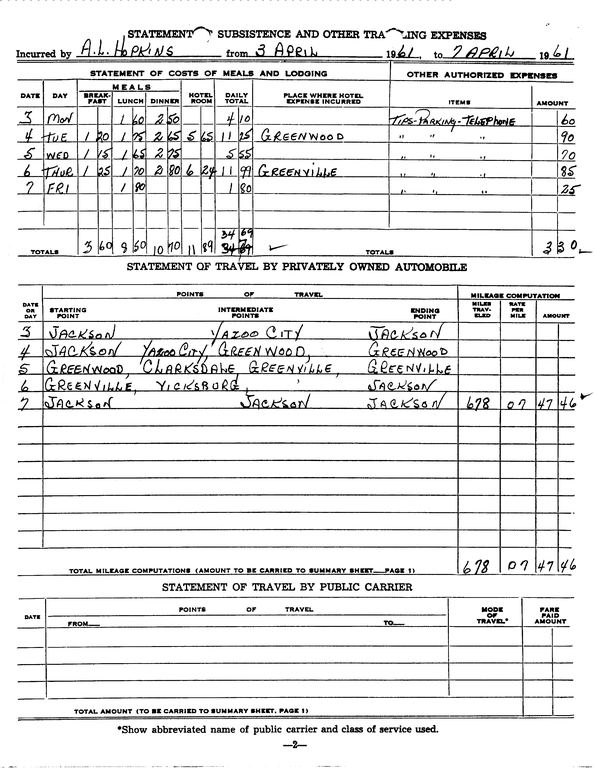 STATEMENT SUBSISTENCE AND OTHER TRA LING EXPENSES
Incurred by A.L. HOPKINS from 3 APRIL 1961, to 7 APRIL 1961
STATEMENT OF COSTS OF MEALS AND LODGING OTHER AUTHORIZED EXPENSES
DATE DAY MEALS HOTEL ROOM DAILY TOTAL PLACE WHERE HOTEL EXPENSE INCURRED ITEMS AMOUNT
BREAK-FAST LUNCH DINNER
3 MON 1 60 2 50 4 10 TIPS-PARKING-TELEPHONE 60
4 TUE 1 20 1 75 2 65 5 65 11 25 GREENWOOD " " " 90
5 WED 1 15 1 65 2 75 5 55 " " " 70
6 THUR 1 25 1 70 2 80 6 24 11 99 GREENVILLE " " " 85
7 FRI 1 80 1 80 " " " 25
34 69
TOTALS 3 60 8 50 10 70 11 89 TOTALS 3 30
STATEMENT OF TRAVEL BY PRIVATELY OWNED AUTOMOBILE
DATE OR DAY POINTS OF TRAVEL MILEAGE COMPUTATION
STARTING POINT INTERMEDIATE POINTS ENDING POINT MILES TRAV-ELED RATE PER MILE AMOUNT
3 JACKSON YAZOO CITY JACKSON
4 JACKSON YAZOO CITY, GREENWOOD, GREENWOOD
5 GREENWOOD, CLARKSDALE GREENVILLE, GREENVILLE
6 GREENVILLE, VICKSBURG, JACKSON
7 JACKSON JACKSON JACKSON 678 07 47 46
TOTAL MILEAGE COMPUTATIONS (AMOUNT TO BE CARRIED TO SUMMARY SHEET—PAGE 1) 678 07 47 46
STATEMENT OF TRAVEL BY PUBLIC CARRIER
DATE POINTS OF TRAVEL MODE OF TRAVEL* FARE PAID AMOUNT
FROM— TO—
TOTAL AMOUNT (TO BE CARRIED TO SUMMARY SHEET, PAGE 1)
*Show abbreviated name of public carrier and class of service used.
—2—